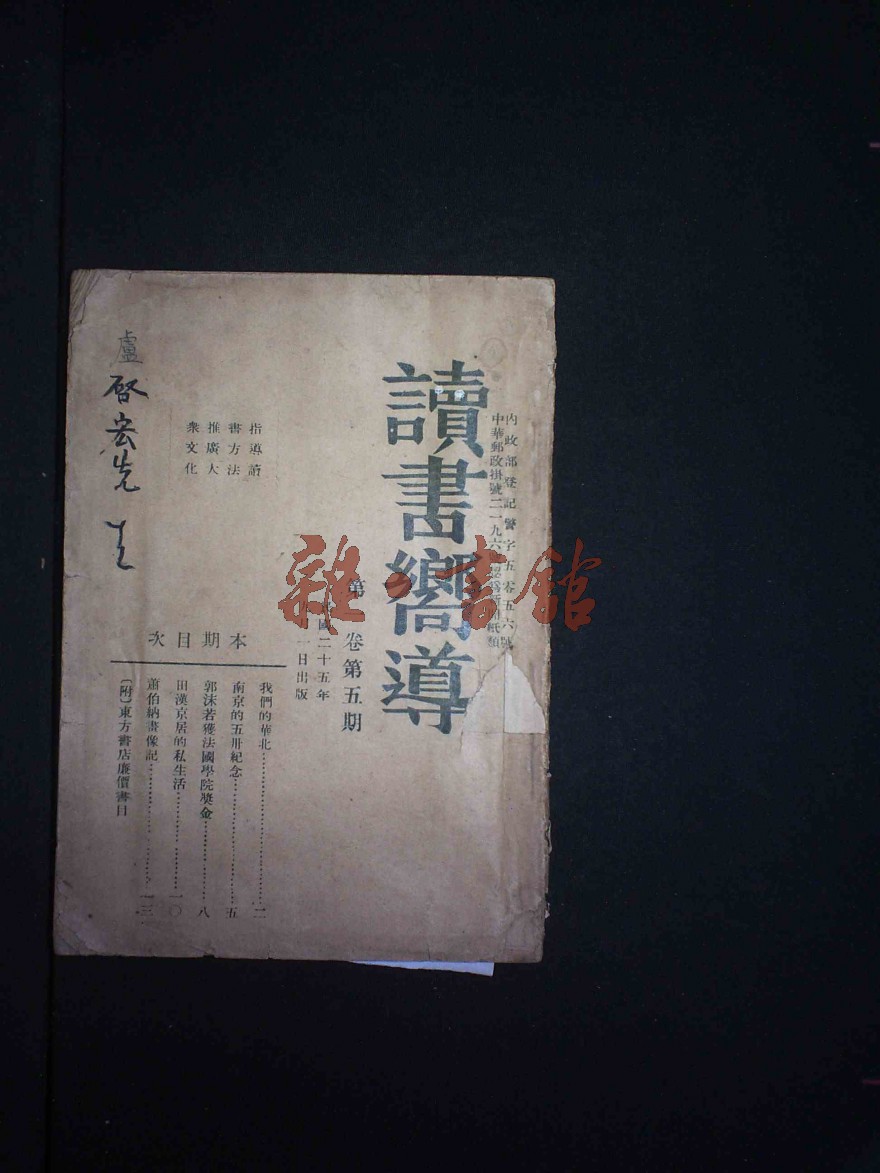 內政部登記警字五零五六號
中華郵政掛號二一九六
紙類
讀書嚮導
第 卷第五期
國二十五年
一日出版
指導讀
書方法
推廣大
衆文化
盧啓宏先生
本期目次
我們的華北……二
南京的五卅紀念……五
郭沫若獲法國學院奬金……八
田漢京居的私生活……一〇
蕭伯納畫像記……一三
〔附〕東方書店廉價書目
雜·書館